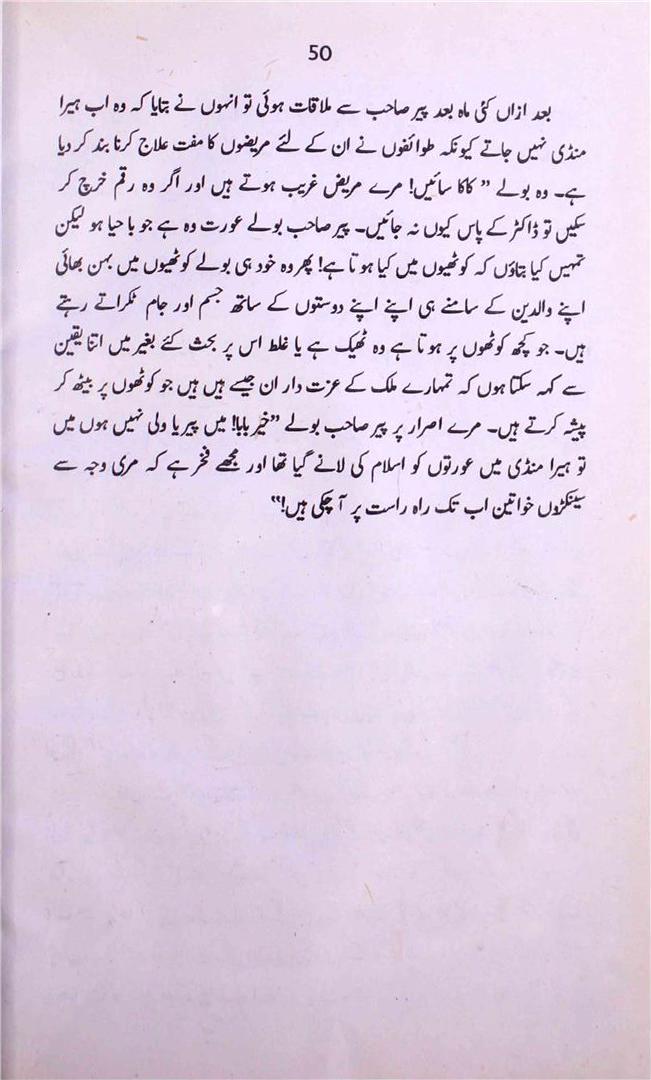 50
بعد ازاں کئی ماہ بعد پیر صاحب سے ملاقات ہوئی تو انہوں نے بتایا کہ وہ اب ہیرا
منڈی نہیں جاتے کیونکہ طوائفوں نے ان کے لئے مریضوں کا مفت علاج کرنا بند کر دیا
ہے۔ وہ بولے ”کاکا سائیں! مرے مریض غریب ہوتے ہیں اور اگر وہ رقم خرچ کر
سکیں تو ڈاکٹر کے پاس کیوں نہ جائیں۔ پیر صاحب بولے عورت وہ ہے جو با حیا ہو لیکن
تمہیں کیا بتاؤں کہ کوٹھیوں میں کیا ہوتا ہے! پھر وہ خود ہی بولے کوٹھیوں میں بہن بھائی
اپنے والدین کے سامنے ہی اپنے اپنے دوستوں کے ساتھ جسم اور جام ٹکراتے رہتے
ہیں۔ جو کچھ کوٹھوں پر ہوتا ہے وہ ٹھیک ہے یا غلط اس پر بحث کئے بغیر میں اتنا یقین
سے کہہ سکتا ہوں کہ تمہارے ملک کے عزت دار ان جیسے ہیں ہیں جو کوٹھوں پر بیٹھ کر
پیشہ کرتے ہیں۔ مرے اصرار پر پیر صاحب بولے ”خیر بابا! میں پیر یا ولی نہیں ہوں میں
تو ہیرا منڈی میں عورتوں کو اسلام کی لانے گیا تھا اور مجھے فخر ہے کہ مری وجہ سے
سینکڑوں خواتین اب تک راہ راست پر آ چکی ہیں!“